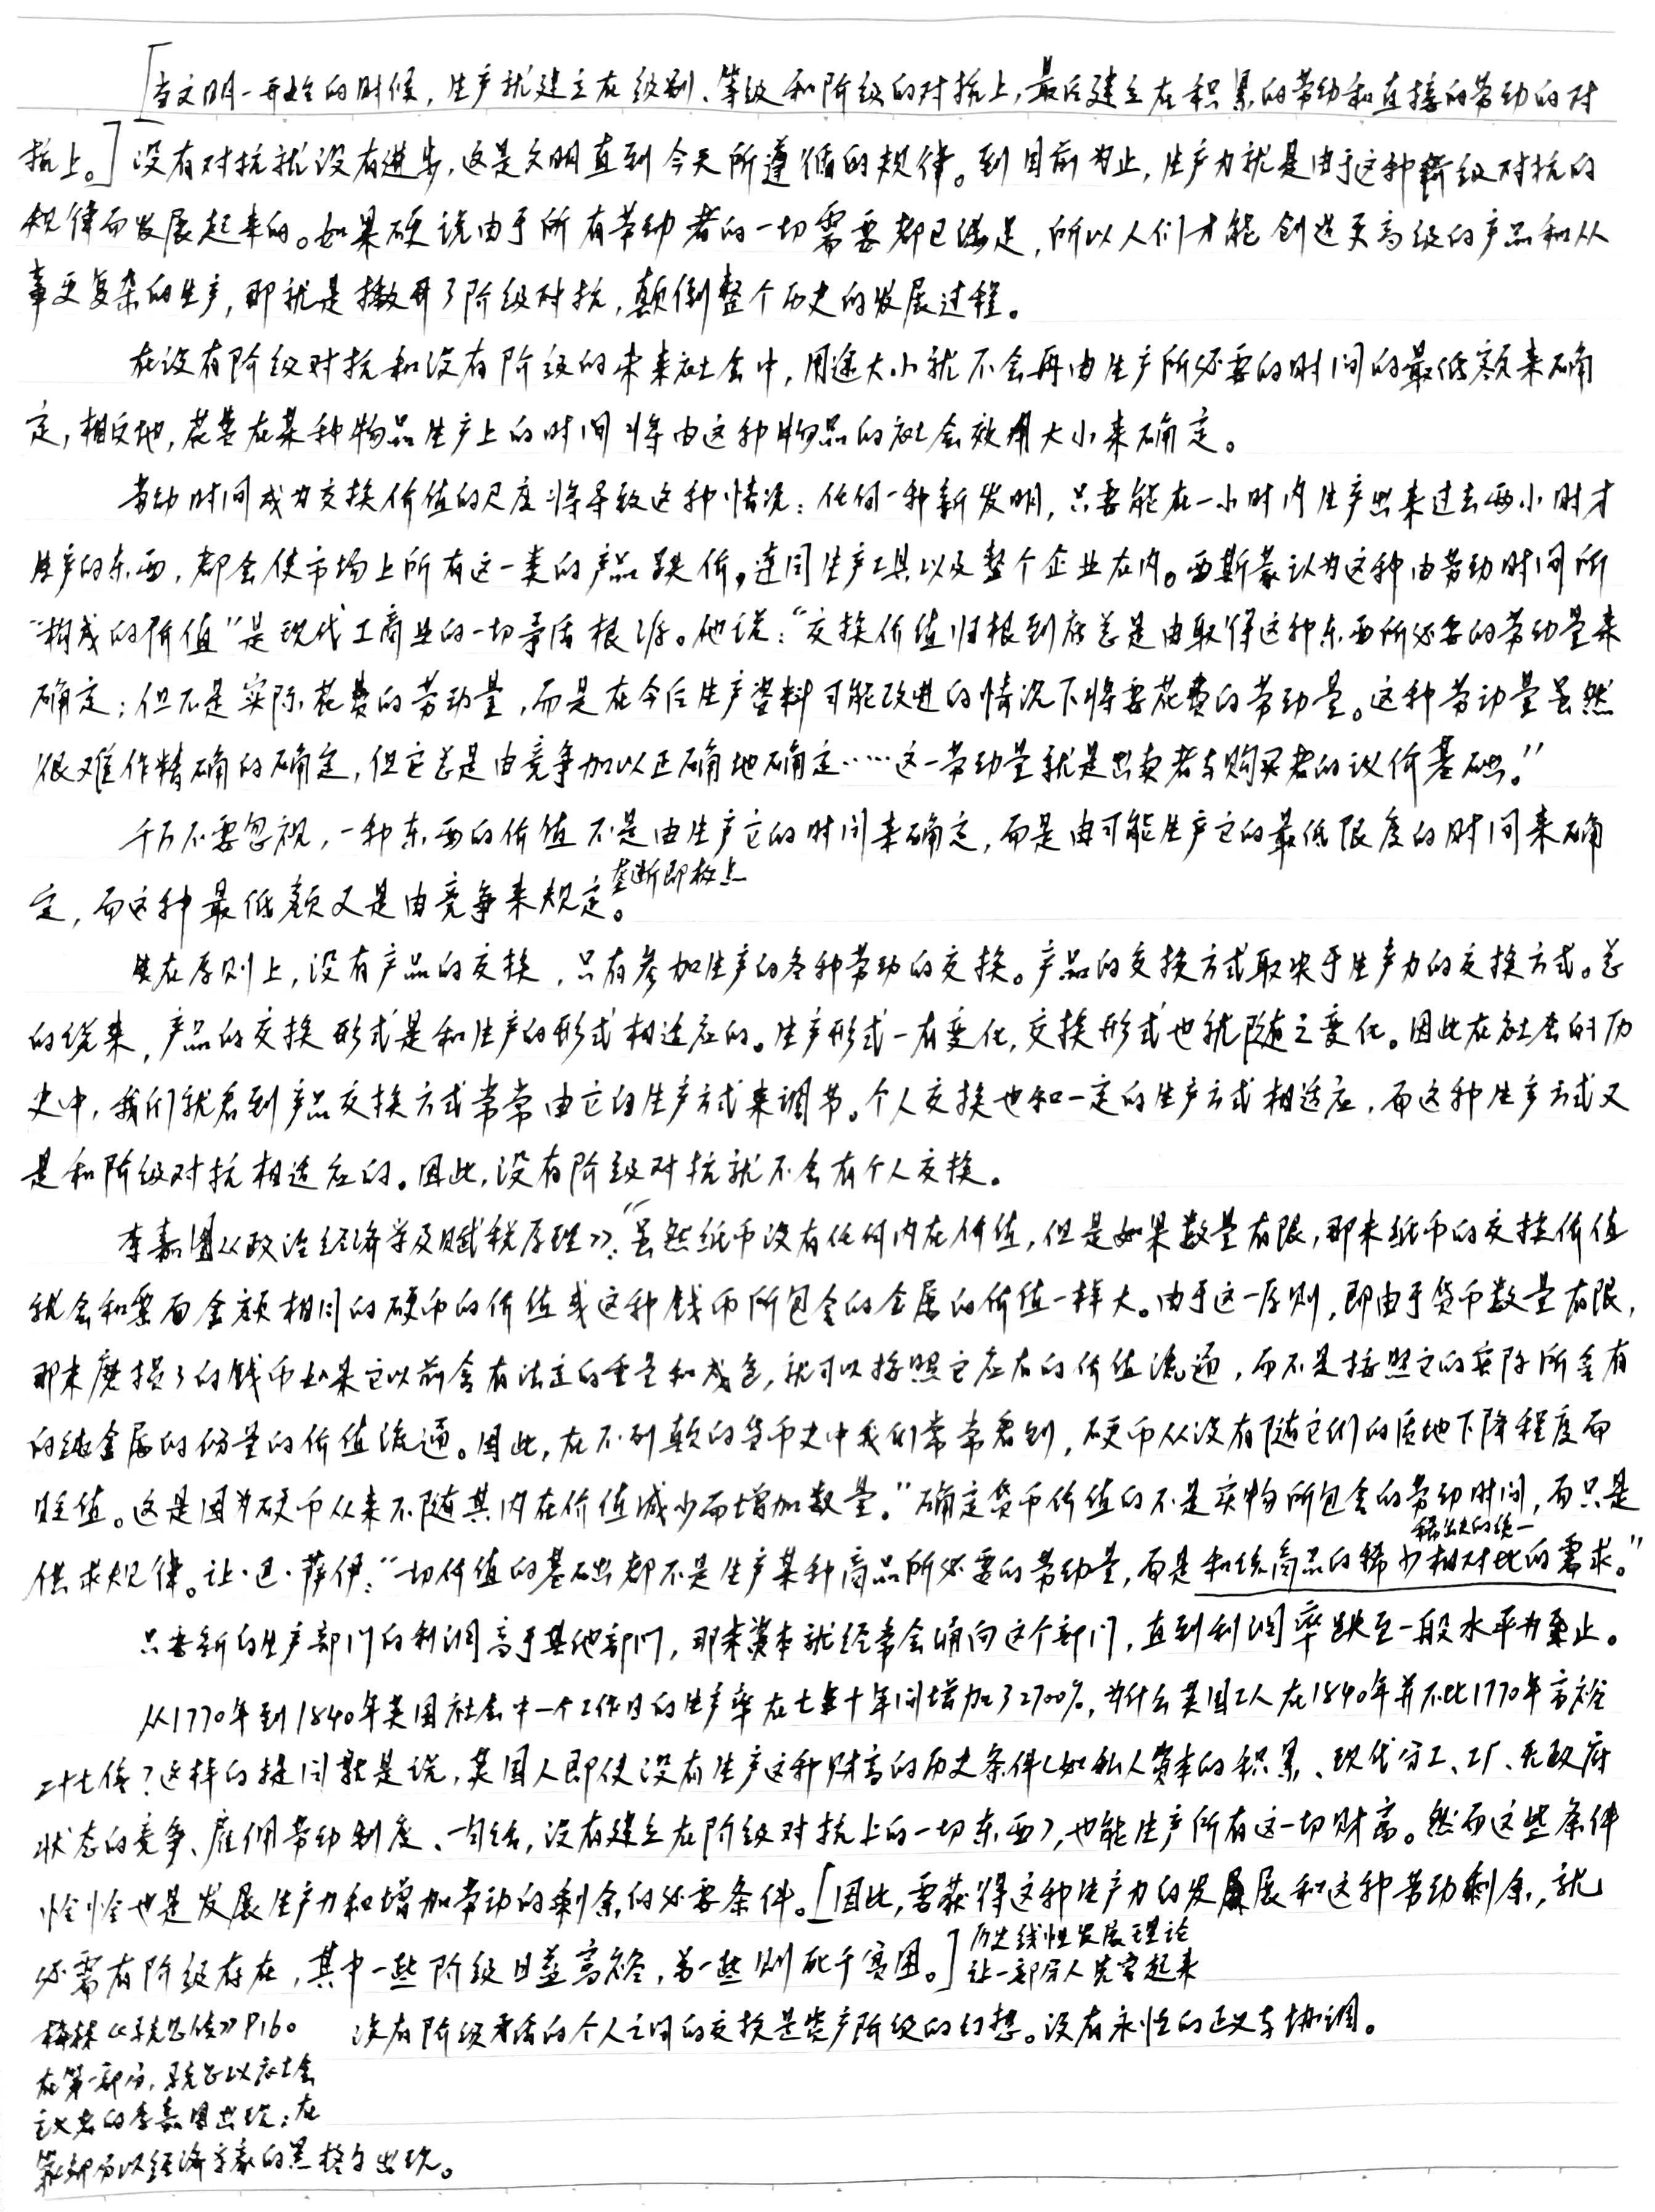 [当文明一开始的时候，生产就建立在级别、等级和阶级的对抗上，最后建立在积累的劳动和直接的劳动的对
抗上。]没有对抗就没有进步，这是文明直到今天所遵循的规律。到目前为止，生产力就是由于这种阶级对抗的
规律而发展起来的。如果硬说由于所有劳动者的一切需要都已满足，所以人们才能创造更高级的产品和从
事更复杂的生产，那就是撇开了阶级对抗，颠倒整个历史的发展过程。
在没有阶级对抗和没有阶级的未来社会中，用途大小就不会再由生产所必要的时间的最低额来确
定，相反地，花费在某种物品生产上的时间将由这种物品的社会效用大小来确定。
劳动时间成为交换价值的尺度将导致这种情况：任何一种新发明，只要能在一小时内生产出来过去两小时才
生产的东西，都会使市场上所有这一类的产品跌价，连同生产工具以及整个企业在内。西斯蒙认为这种由劳动时间所
“构成的价值”是现代工商业的一切矛盾根源。他说：“交换价值归根到底总是由取得这种东西所必要的劳动量来
确定；但不是实际花费的劳动量，而是在今后生产资料可能改进的情况下将要花费的劳动量。这种劳动量虽然
很难作精确的确定，但它总是由竞争加以正确地确定……这一劳动量就是出卖者与购买者的议价基础。”
千万不要忽视，一种东西的价值不是由生产它的时间来确定，而是由可能生产它的最低限度的时间来确
垄断即极点
定，而这种最低额又是由竞争来规定。
在原则上，没有产品的交换，只有参加生产的各种劳动的交换。产品的交换方式取决于生产力的交换方式。总
的说来，产品的交换形式是和生产的形式相适应的。生产形式一有变化，交换形式也就随之变化。因此在社会的历
史中，我们就看到产品交换方式常常由它的生产方式来调节。个人交换也和一定的生产方式相适应，而这种生产方式又
是和阶级对抗相适应的。因此，没有阶级对抗就不会有个人交换。
李嘉图《政治经济学及赋税原理》：“虽然纸币没有任何内在价值，但是如果数量有限，那末纸币的交换价值
就会和票面金额相同的硬币的价值或这种钱币所包含的金属的价值一样大。由于这一原则，即由于货币数量有限，
那末磨损了的钱币如果它以前含有法定的重量和成色，就可以按照它应有的价值流通，而不是按照它的实际所含有
的纯金属的份量的价值流通。因此，在不列颠的货币史中我们常常看到，硬币从没有随它们的质地下降程度而
贬值。这是因为硬币从来不随其内在价值减少而增加数量。”确定货币价值的不是实物所包含的劳动时间，而只是
稀缺的统一
供求规律。让·巴·萨伊：“一切价值的基础都不是生产某种商品所必要的劳动量，而是和该商品的稀少相对比的需求。”
只要新的生产部门的利润高于其他部门，那末资本就经常会涌向这个部门，直到利润率跌至一般水平为止。
从1770年到1840年英国社会中一个工作日的生产率在七十年间增加了2700%，为什么英国工人在1840年并不比1770年富裕
二十七倍？这样的提问就是说，英国人即使没有生产这种财富的历史条件（如私人资本的积累、现代分工、工厂、无政府
状态的竞争、雇佣劳动制度、一句话，没有建立在阶级对抗上的一切东西），也能生产所有这一切财富。然而这些条件
恰恰也是发展生产力和增加劳动的剩余的必要条件。[因此，要获得这种生产力的发展和这种劳动剩余，就
必需有阶级存在，其中一些阶级日益富裕，另一些则死于贫困。]历史线性发展理论
让一部分人先富起来
梅林《马克思传》P160
没有阶级矛盾的个人之间的交换是资产阶级的幻想。没有永恒的正义与协调。
在第一部分，马克思以社会
主义者的李嘉图出现；在
第二部分以经济学家的黑格尔出现。